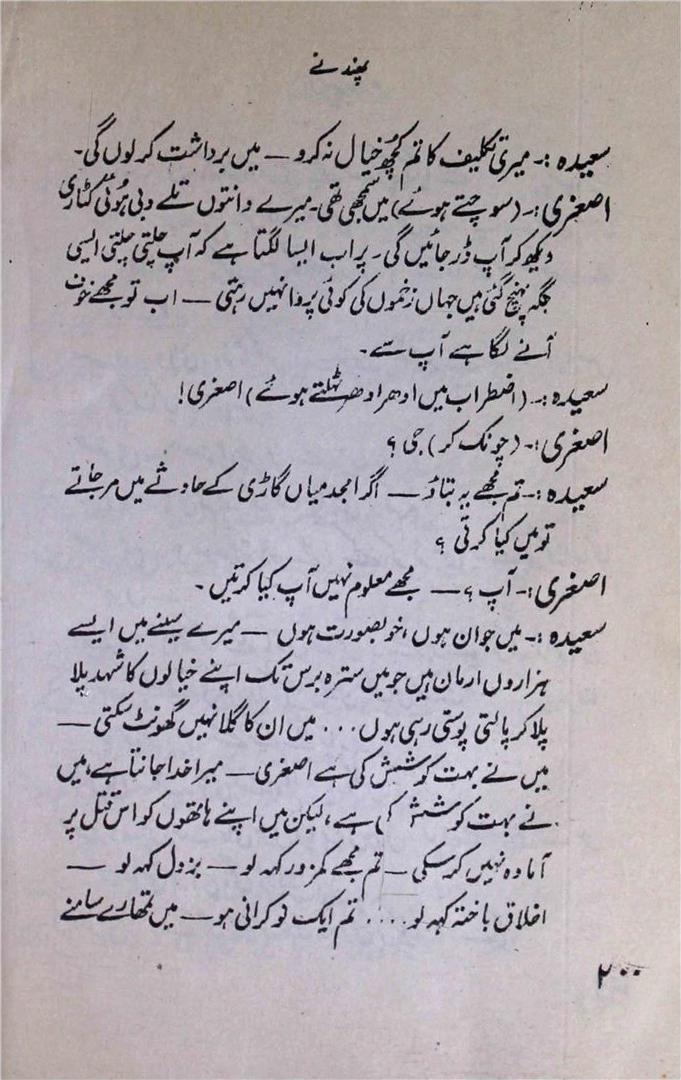 پھندنے
سعیدہ :۔ میری تکلیف کا تم کچھ خیال نہ کرو — میں برداشت کر لوں گی۔
اصغری :۔ (سوچتے ہوئے) میں سمجھی تھی۔ میرے دانتوں تلے دبی ہوئی کٹاری
دیکھ کر آپ ڈر جائیں گی۔ پر اب ایسا لگتا ہے کہ آپ چلتی چلتی ایسی
جگہ پہنچ گئی ہیں جہاں زخموں کی کوئی پروا نہیں رہتی — اب تو مجھے خوف
آنے لگا ہے آپ سے۔
سعیدہ :۔ (اضطراب میں ادھر ادھر ٹہلتے ہوئے) اصغری !
اصغری :۔ (چونک کر) جی ؟
سعیدہ :۔ تم مجھے یہ بتاؤ — اگر امجد میاں گاڑی کے حادثے میں مر جاتے
تو میں کیا کرتی ؟
اصغری :۔ آپ ؟ — مجھے معلوم نہیں آپ کیا کرتیں ۔
سعیدہ :۔ میں جوان ہوں ، خوبصورت ہوں — میرے سینے میں ایسے
ہزاروں ارمان ہیں جو میں سترہ برس تک اپنے خیالوں کا شہد پلا
پلا کر پالتی پوستی رہی ہوں ... میں ان کا گلا نہیں گھونٹ سکتی —
میں نے بہت کوشش کی ہے اصغری — میرا خدا جانتا ہے ، میں
نے بہت کوشش کی ہے ، لیکن میں اپنے ہاتھوں کو اس قتل پر
آمادہ نہیں کر سکی — تم مجھے کمزور کہہ لو — بزدل کہہ لو —
اخلاق باختہ کہہ لو .... تم ایک نوکرانی ہو — میں تمھارے سامنے
۲۰۰